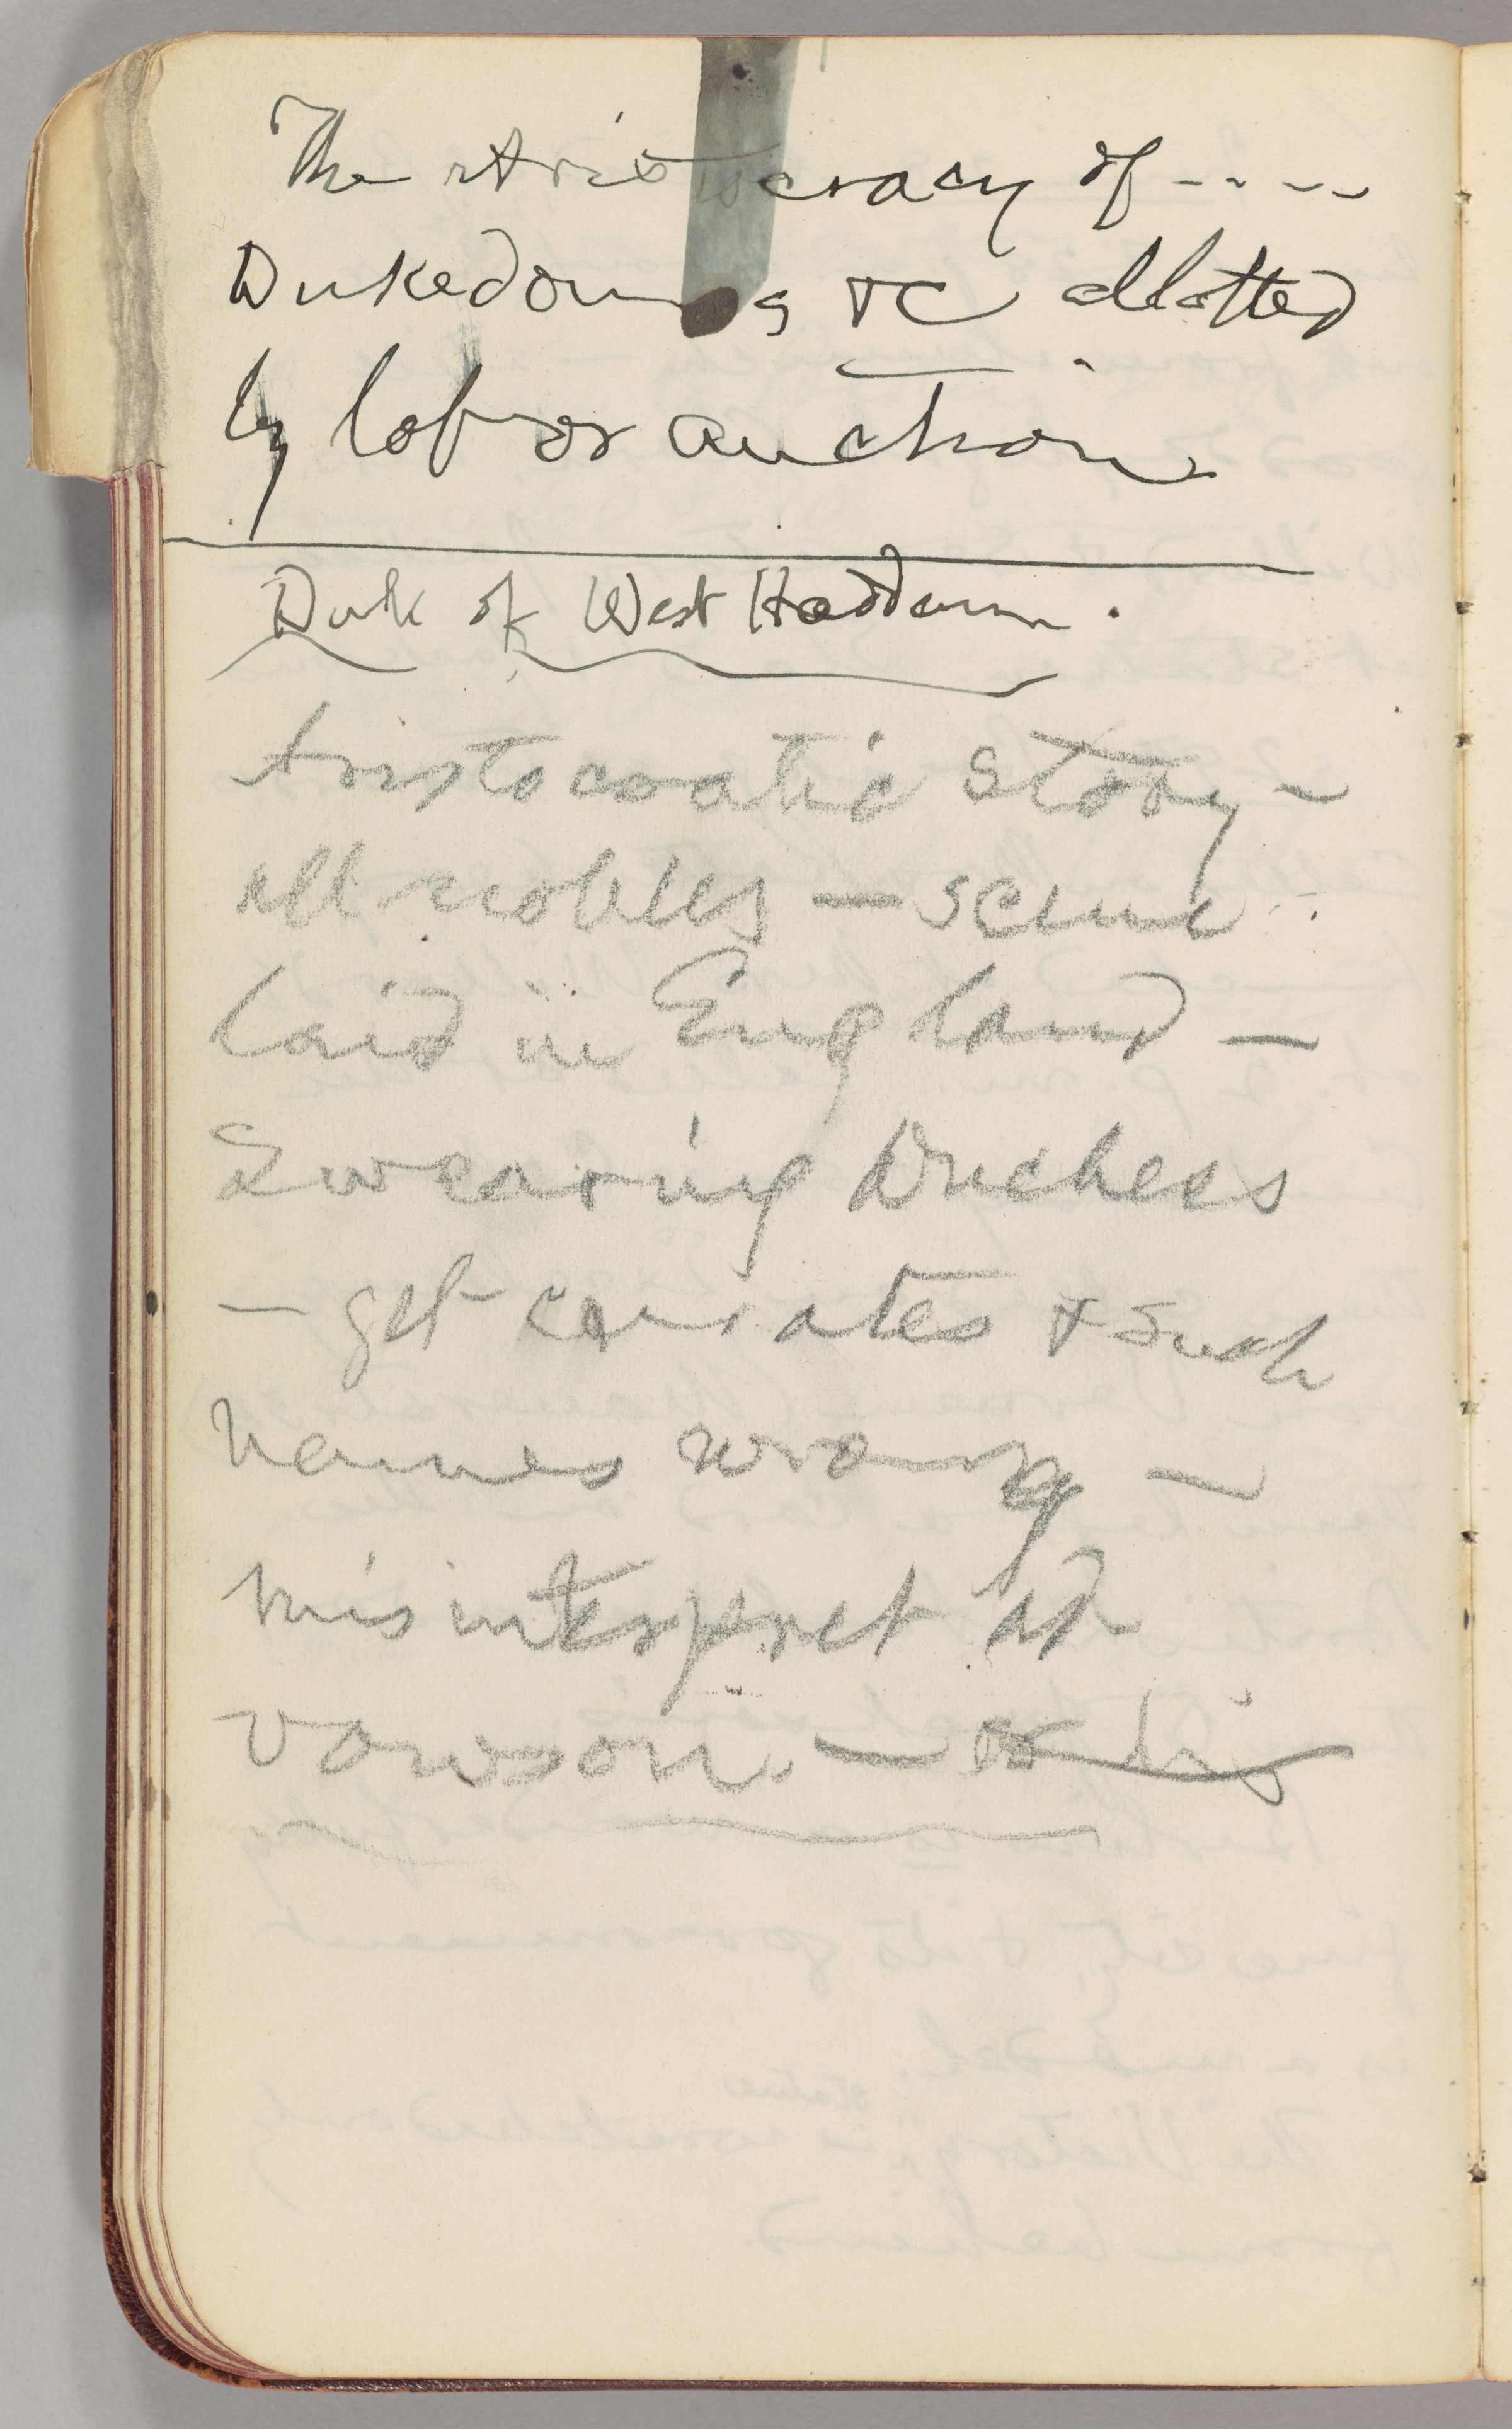 The Aristocracy of - - - -
Dukedoms &c allotted
by lot or auction.
Duk of West Haddam.
Aristocratic story -
all nobles — scene
laid in England —
Swearing Duchess
— get curates & such
names wrong —
misinterpret ad-
vowson. —